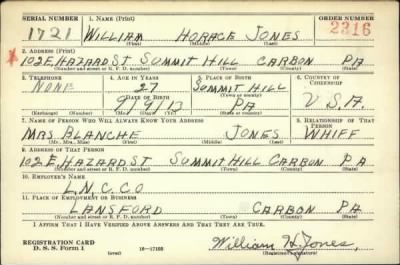 SERIAL NUMBER 1. NAME (Print) ORDER NUMBER
1721 WILLIAM HORACE JONES 2316
(First) (Middle) (Last)
2. ADDRESS (Print)
102 E, HAZARD ST SUMMIT HILL CARBON PA
(Number and street or R. F. D. number) (Town) (County) (State)
3. TELEPHONE 4. AGE IN YEARS 5. PLACE OF BIRTH 6. COUNTRY OF CITIZENSHIP
NONE 27 SUMMIT HILL
DATE OF BIRTH (Town or county)
9/9/13 PA U.S.A.
(Exchange) (Number) (Mo.) (Day) (Yr.) (State or country)
7. NAME OF PERSON WHO WILL ALWAYS KNOW YOUR ADDRESS 8. RELATIONSHIP OF THAT PERSON
MRS BLANCHE JONES WHIFF
(Mr., Mrs., Miss) (First) (Middle) (Last)
9. ADDRESS OF THAT PERSON
102 E, HAZARD ST SUMMIT HILL CARBON PA
(Number and street or R. F. D. number) (Town) (County) (State)
10. EMPLOYER'S NAME
L.N.C.CO
11. PLACE OF EMPLOYMENT OR BUSINESS
LANSFORD CARBON PA.
(Number and street or R. F. D. number) (Town) (County) (State)
I AFFIRM THAT I HAVE VERIFIED ABOVE ANSWERS AND THAT THEY ARE TRUE.
REGISTRATION CARD
D. S. S. Form 1 16-17105 William H. Jones,
(over) (Registrant's signature)